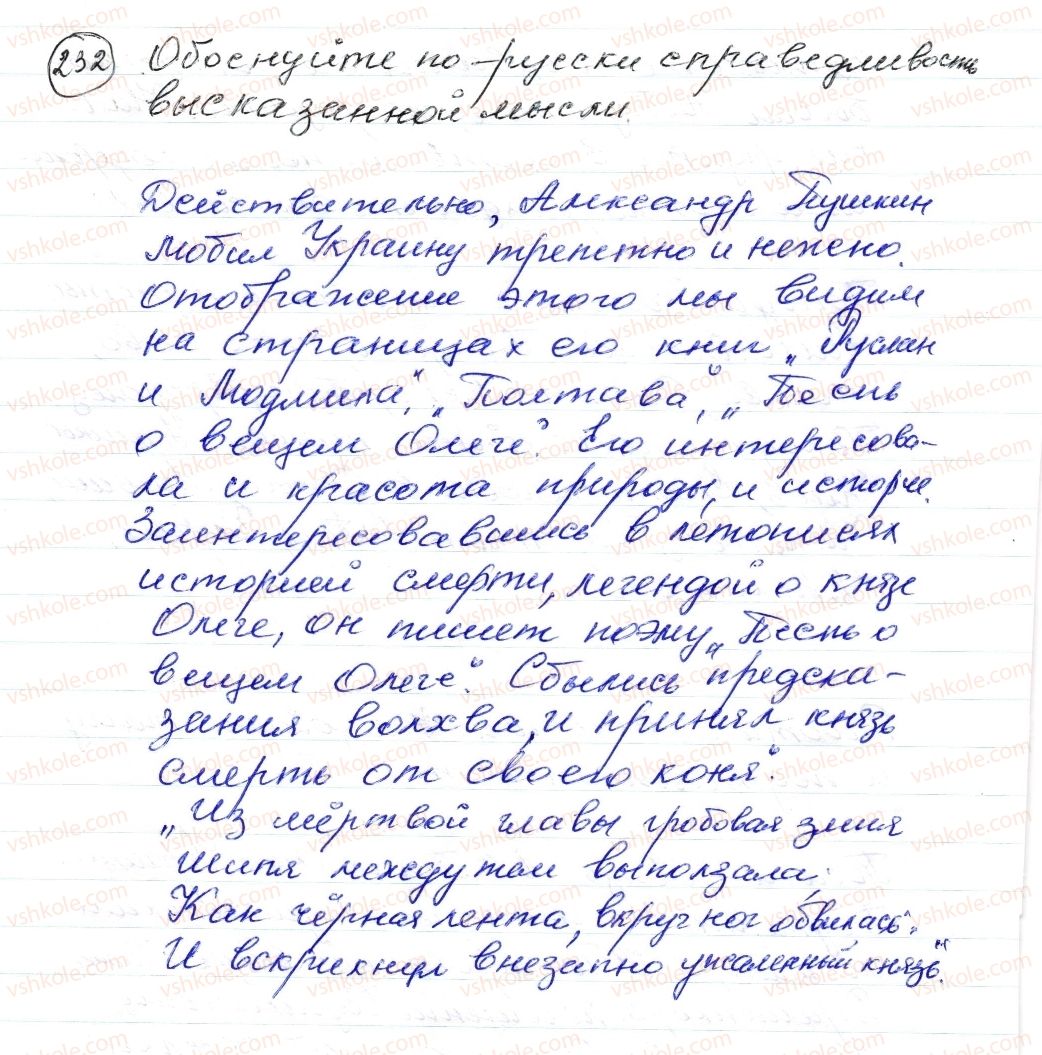 232 Обоснуйте по-русски справедливость
высказанной мысли.
Действительно, Александр Пушкин
любил Украину трепетно и нежно.
Отображение этого мы видим
на страницах его книг „Руслан
и Людмила", „Полтава", „Песнь
о вещем Олеге". Его интересова-
ла и красота природы, и история.
Заинтересовавшись в летописях
историей смерти, легендой о князе
Олеге, он пишет поэму „Песнь о
вещем Олеге". Сбылись предска-
зания волхва, и принял князь
смерть от своего коня".
„Из мёртвой главы гробовая змия
Шипя между тем выползала;
Как чёрная лента, вкруг ног обвилась:
И вскрикнул внезапно ужаленный князь".